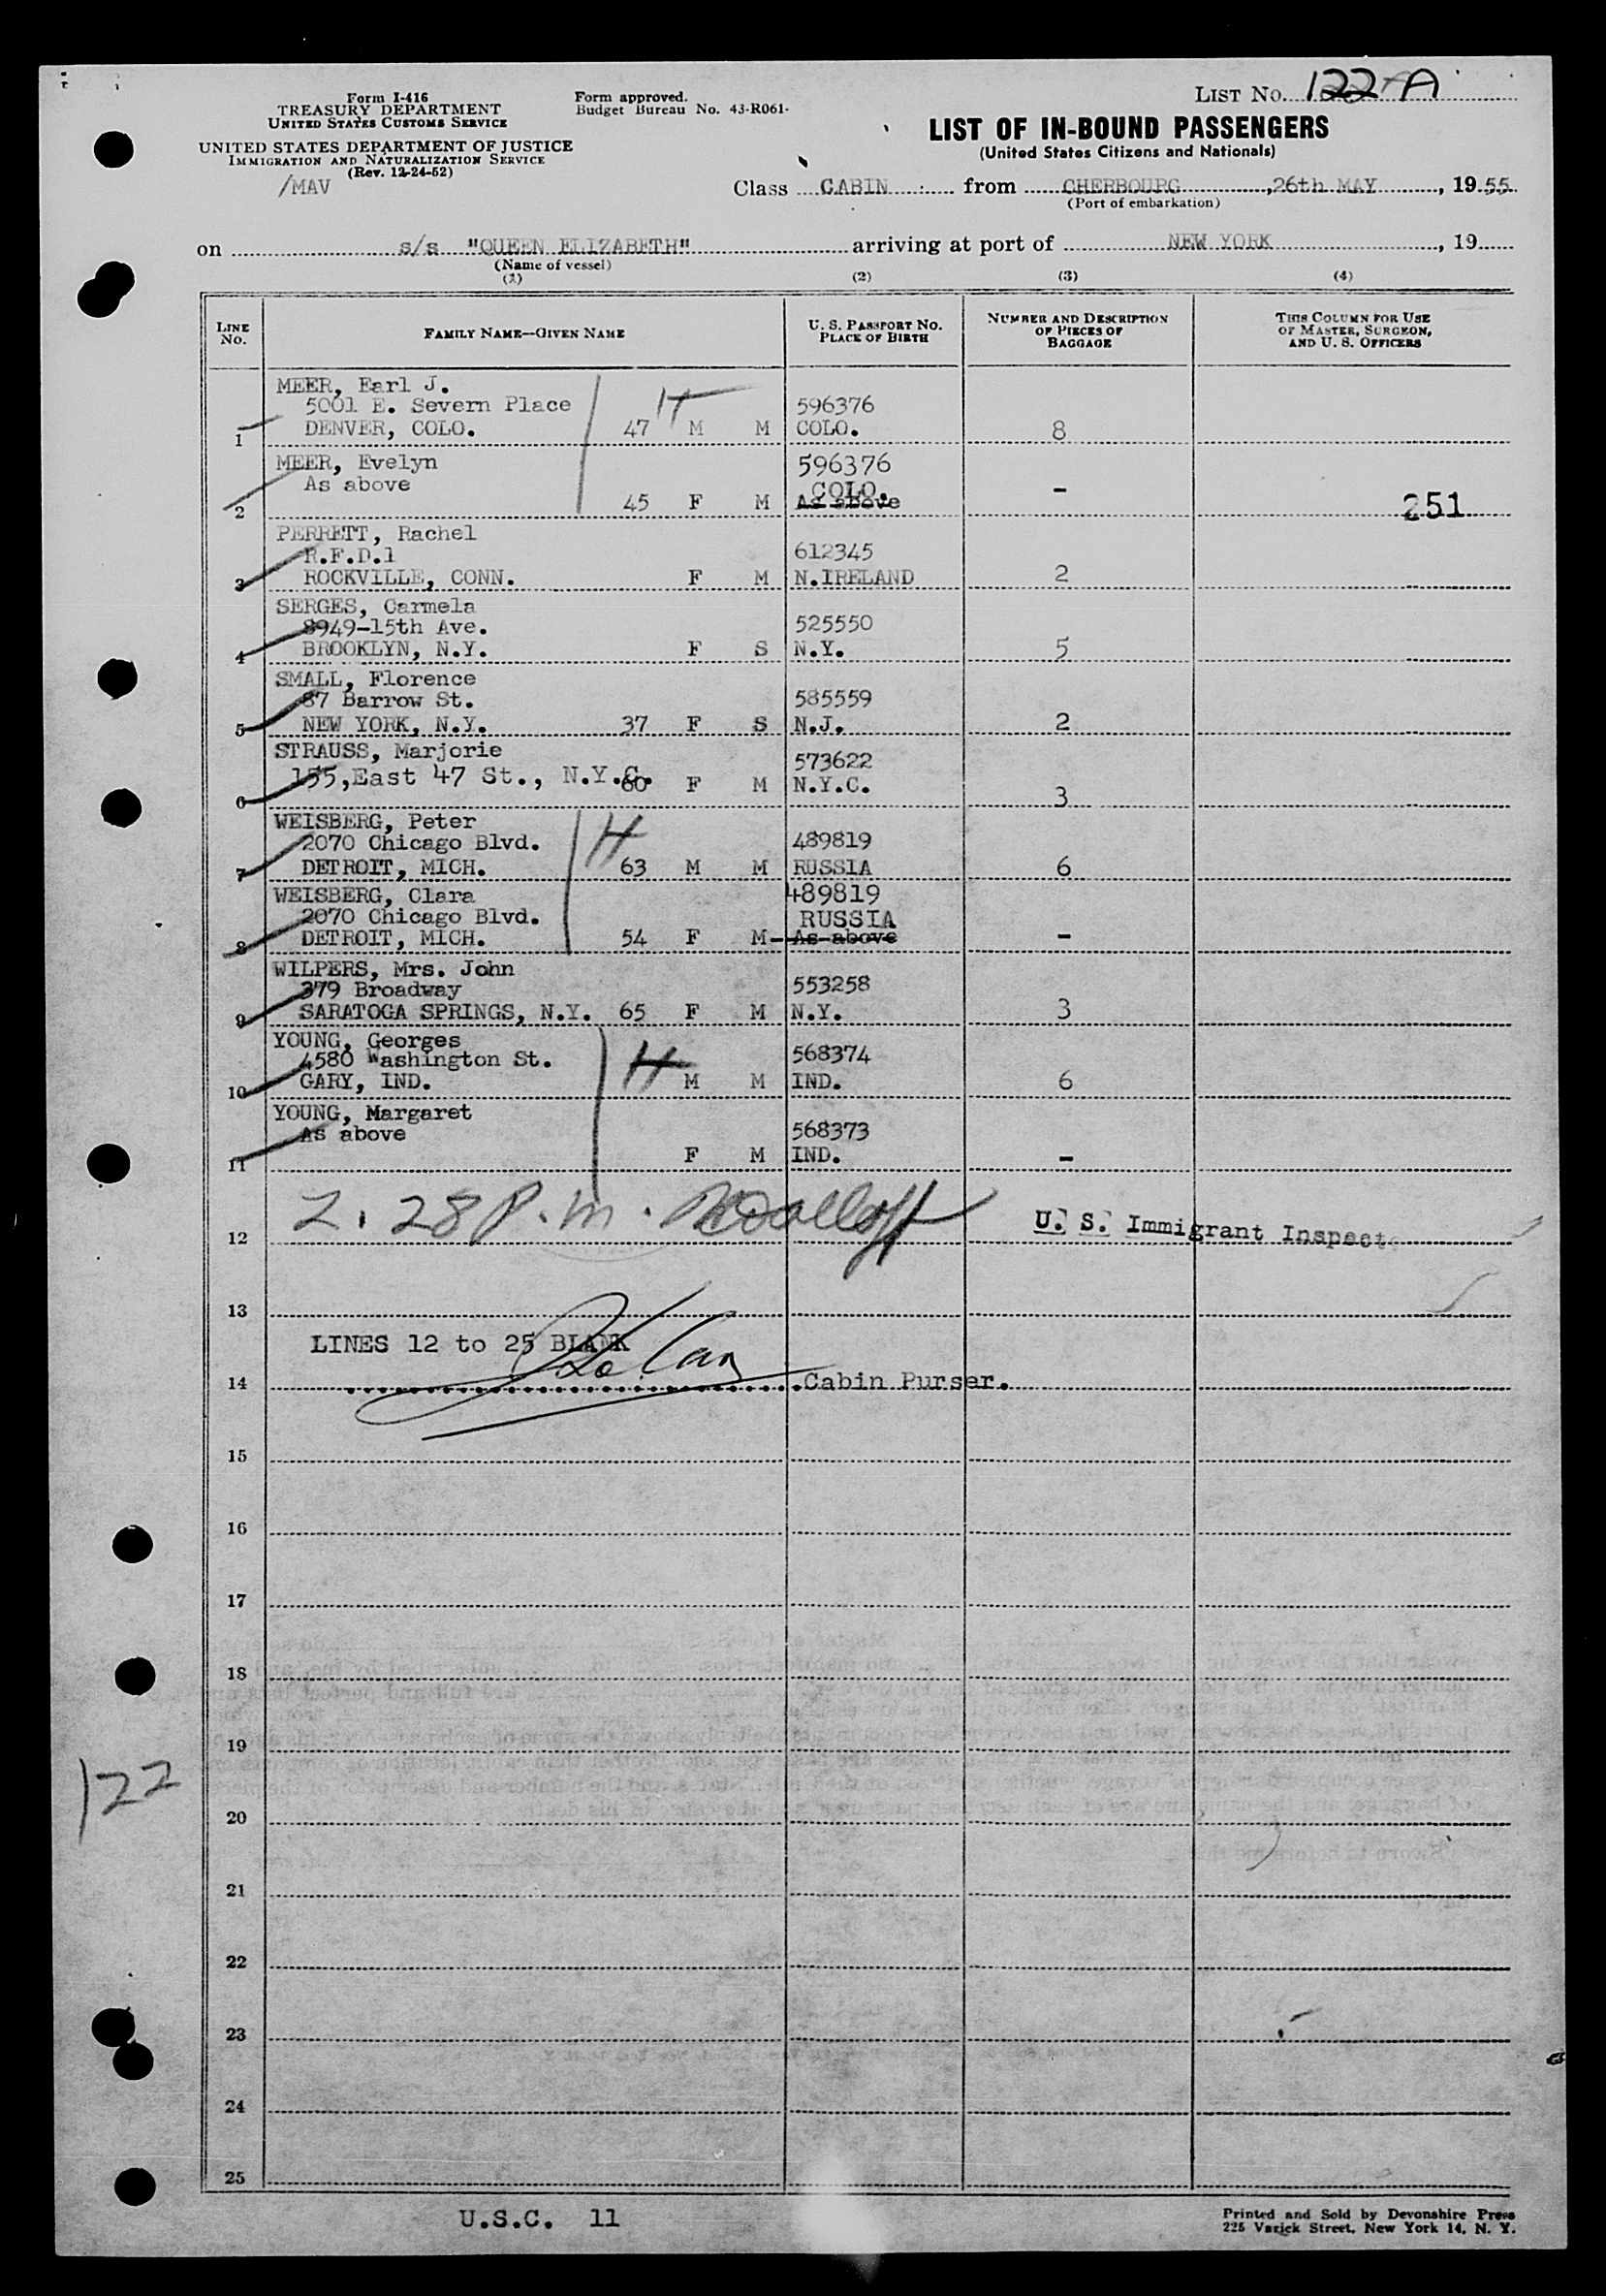 LIST NO. 122-A
Form I-416
TREASURY DEPARTMENT
UNITED STATES CUSTOMS SERVICE
UNITED STATES DEPARTMENT OF JUSTICE
IMMIGRATION AND NATURALIZATION SERVICE
(Rev. 12-24-52)
/MAV
Form approved.
Budget Bureau No. 43-R061-
LIST OF IN-BOUND PASSENGERS
(United States Citizens and Nationals)
Class CABIN from CHERBOURG, 26th MAY, 1955
(Port of embarkation)
on s/s "QUEEN ELIZABETH" arriving at port of NEW YORK, 19
(Name of vessel)
(1) (2) (3) (4)
LINE NO. FAMILY NAME—GIVEN NAME U. S. PASSPORT NO. PLACE OF BIRTH NUMBER AND DESCRIPTION OF PIECES OF BAGGAGE THIS COLUMN FOR USE OF MASTER, SURGEON, AND U. S. OFFICERS
MEER, Earl J.
5001 E. Severn Place H 596376
1 DENVER, COLO. 47 M M COLO. 8
MEER, Evelyn 596376
As above COLO.
2 45 F M As above - 251
PERRETT, Rachel
R.F.D.1 612345
3 ROCKVILLE, CONN. F M N.IRELAND 2
SERGES, Carmela
8949-15th Ave. 525550
4 BROOKLYN, N.Y. F S N.Y. 5
SMALL, Florence
87 Barrow St. 585559
5 NEW YORK, N.Y. 37 F S N.J. 2
STRAUSS, Marjorie 573622
155,East 47 St., N.Y.C. 60 F M N.Y.C.
6 3
WEISBERG, Peter
2070 Chicago Blvd. H 489819
7 DETROIT, MICH. 63 M M RUSSIA 6
WEISBERG, Clara 489819
2070 Chicago Blvd. RUSSIA
8 DETROIT, MICH. 54 F M As above -
WILPERS, Mrs. John
379 Broadway 553258
9 SARATOGA SPRINGS, N.Y. 65 F M N.Y. 3
YOUNG, Georges
4580 Washington St. H 568374
10 GARY, IND. M M IND. 6
YOUNG, Margaret
As above 568373
11 F M IND. -
2.28 P.m.
12 U. S. Immigrant Inspect
13
LINES 12 to 25 BLANK
14 Cabin Purser.
15
16
17
18
19
122
20
21
22
23
24
25
U.S.C. 11
Printed and Sold by Devonshire Press
225 Varick Street, New York 14, N. Y.